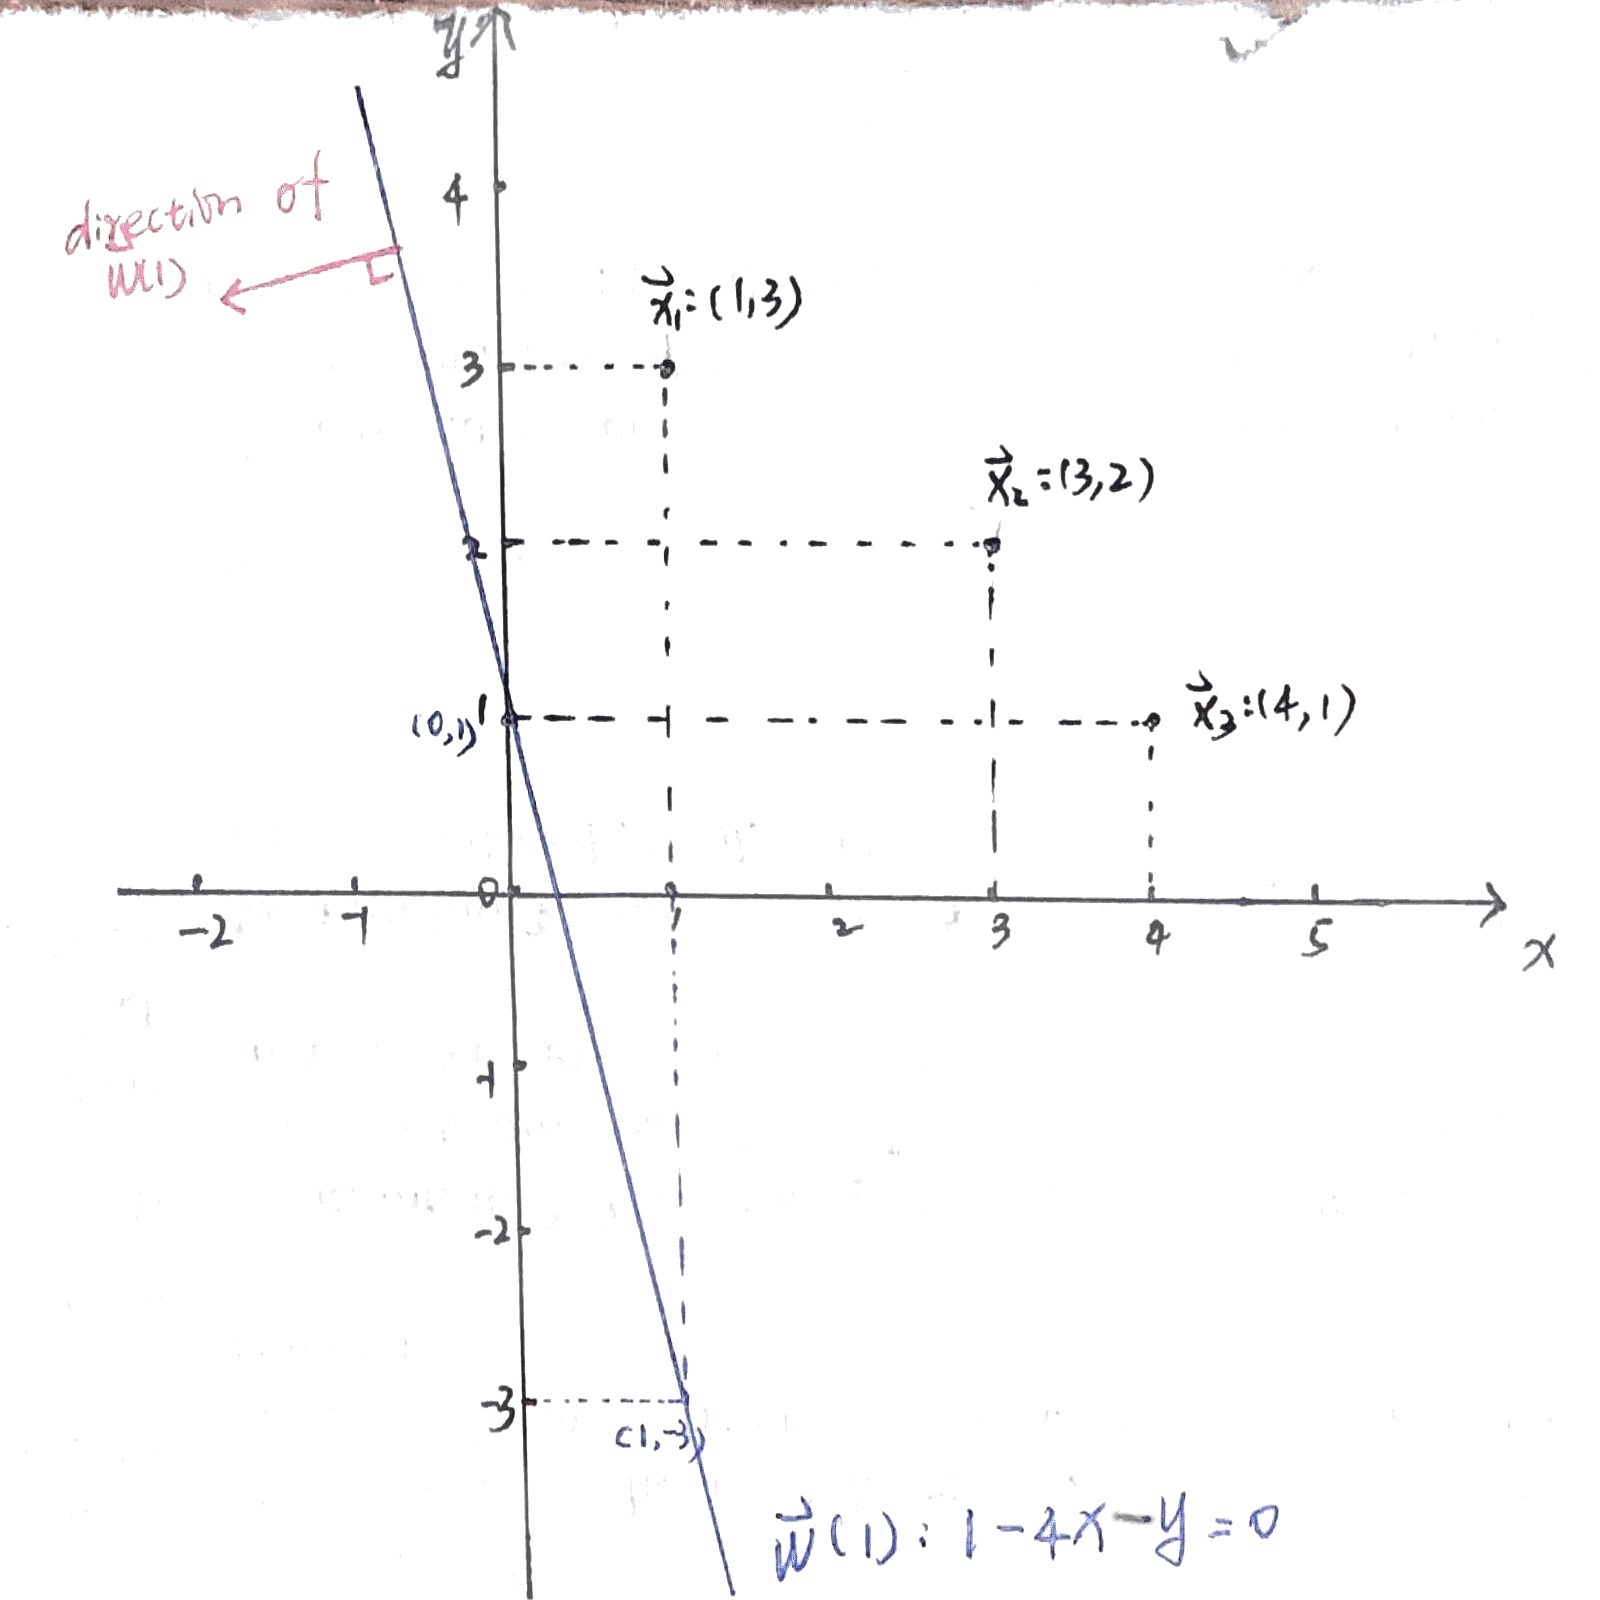 y
direction of
W(1)
4
x⃗₁:(1,3)
3
x⃗₂:(3,2)
2
1
(0,1)
x⃗₃:(4,1)
-2
-1
0
1
2
3
4
5
x
-1
-2
-3
(1,-3)
w⃗(1): 1-4x-y=0